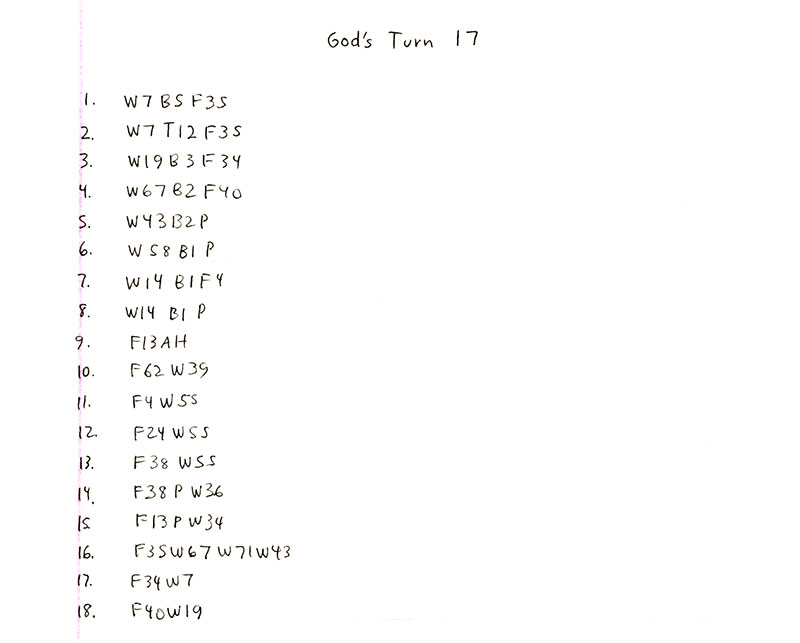 God's Turn 17
1. W7 B5 F35
2. W7 T12 F35
3. W19 B3 F34
4. W67 B2 F40
5. W43 B2P
6. W58 B1 P
7. W14 B1F4
8. W14 B1 P
9. F13AH
10. F62 W39
11. F4 W55
12. F24 W55
13. F38 W55
14. F38 P W36
15 F13 P W34
16. F35W67W71W43
17. F34W7
18. F40W19